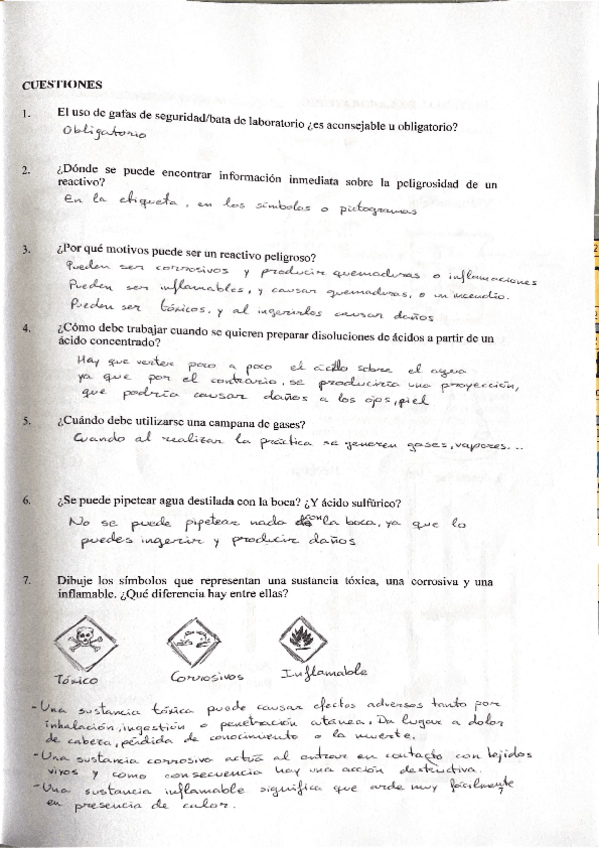 CUESTIONES
1. El uso de gafas de seguridad/bata de laboratorio ¿es aconsejable u obligatorio?
Obligatorio
2. ¿Dónde se puede encontrar información inmediata sobre la peligrosidad de un
reactivo?
En la etiqueta, en los símbolos o pictogramas
3. ¿Por qué motivos puede ser un reactivo peligroso?
Pueden ser corrosivos y producir quemaduras o inflamaciones
Pueden ser inflamables, y causar quemaduras, o un incendio.
Pueden ser tóxicos, y al ingerirlos causar daños
4. ¿Cómo debe trabajar cuando se quieren preparar disoluciones de ácidos a partir de un
ácido concentrado?
Hay que verter poco a poco el ácido sobre el agua
ya que por el contrario, se produciría una proyección,
que podría causar daños a los ojos, piel
5. ¿Cuándo debe utilizarse una campana de gases?
Cuando al realizar la práctica se generen gases, vapores...
6. ¿Se puede pipetear agua destilada con la boca? ¿Y ácido sulfúrico?
No se puede pipetear nada con la boca, ya que lo
puedes ingerir y producir daños
7. Dibuje los símbolos que representan una sustancia tóxica, una corrosiva y una
inflamable. ¿Qué diferencia hay entre ellas?
Tóxico Corrosivos Inflamable
- Una sustancia tóxica puede causar efectos adversos tanto por
inhalación, ingestión o penetración cutánea. Da lugar a dolor
de cabeza, pérdida de conocimiento o la muerte.
- Una sustancia corrosiva actúa al entrar en contacto con tejidos
vivos y como consecuencia hay una acción destructiva.
- Una sustancia inflamable significa que arde muy fácilmente
en presencia de calor.